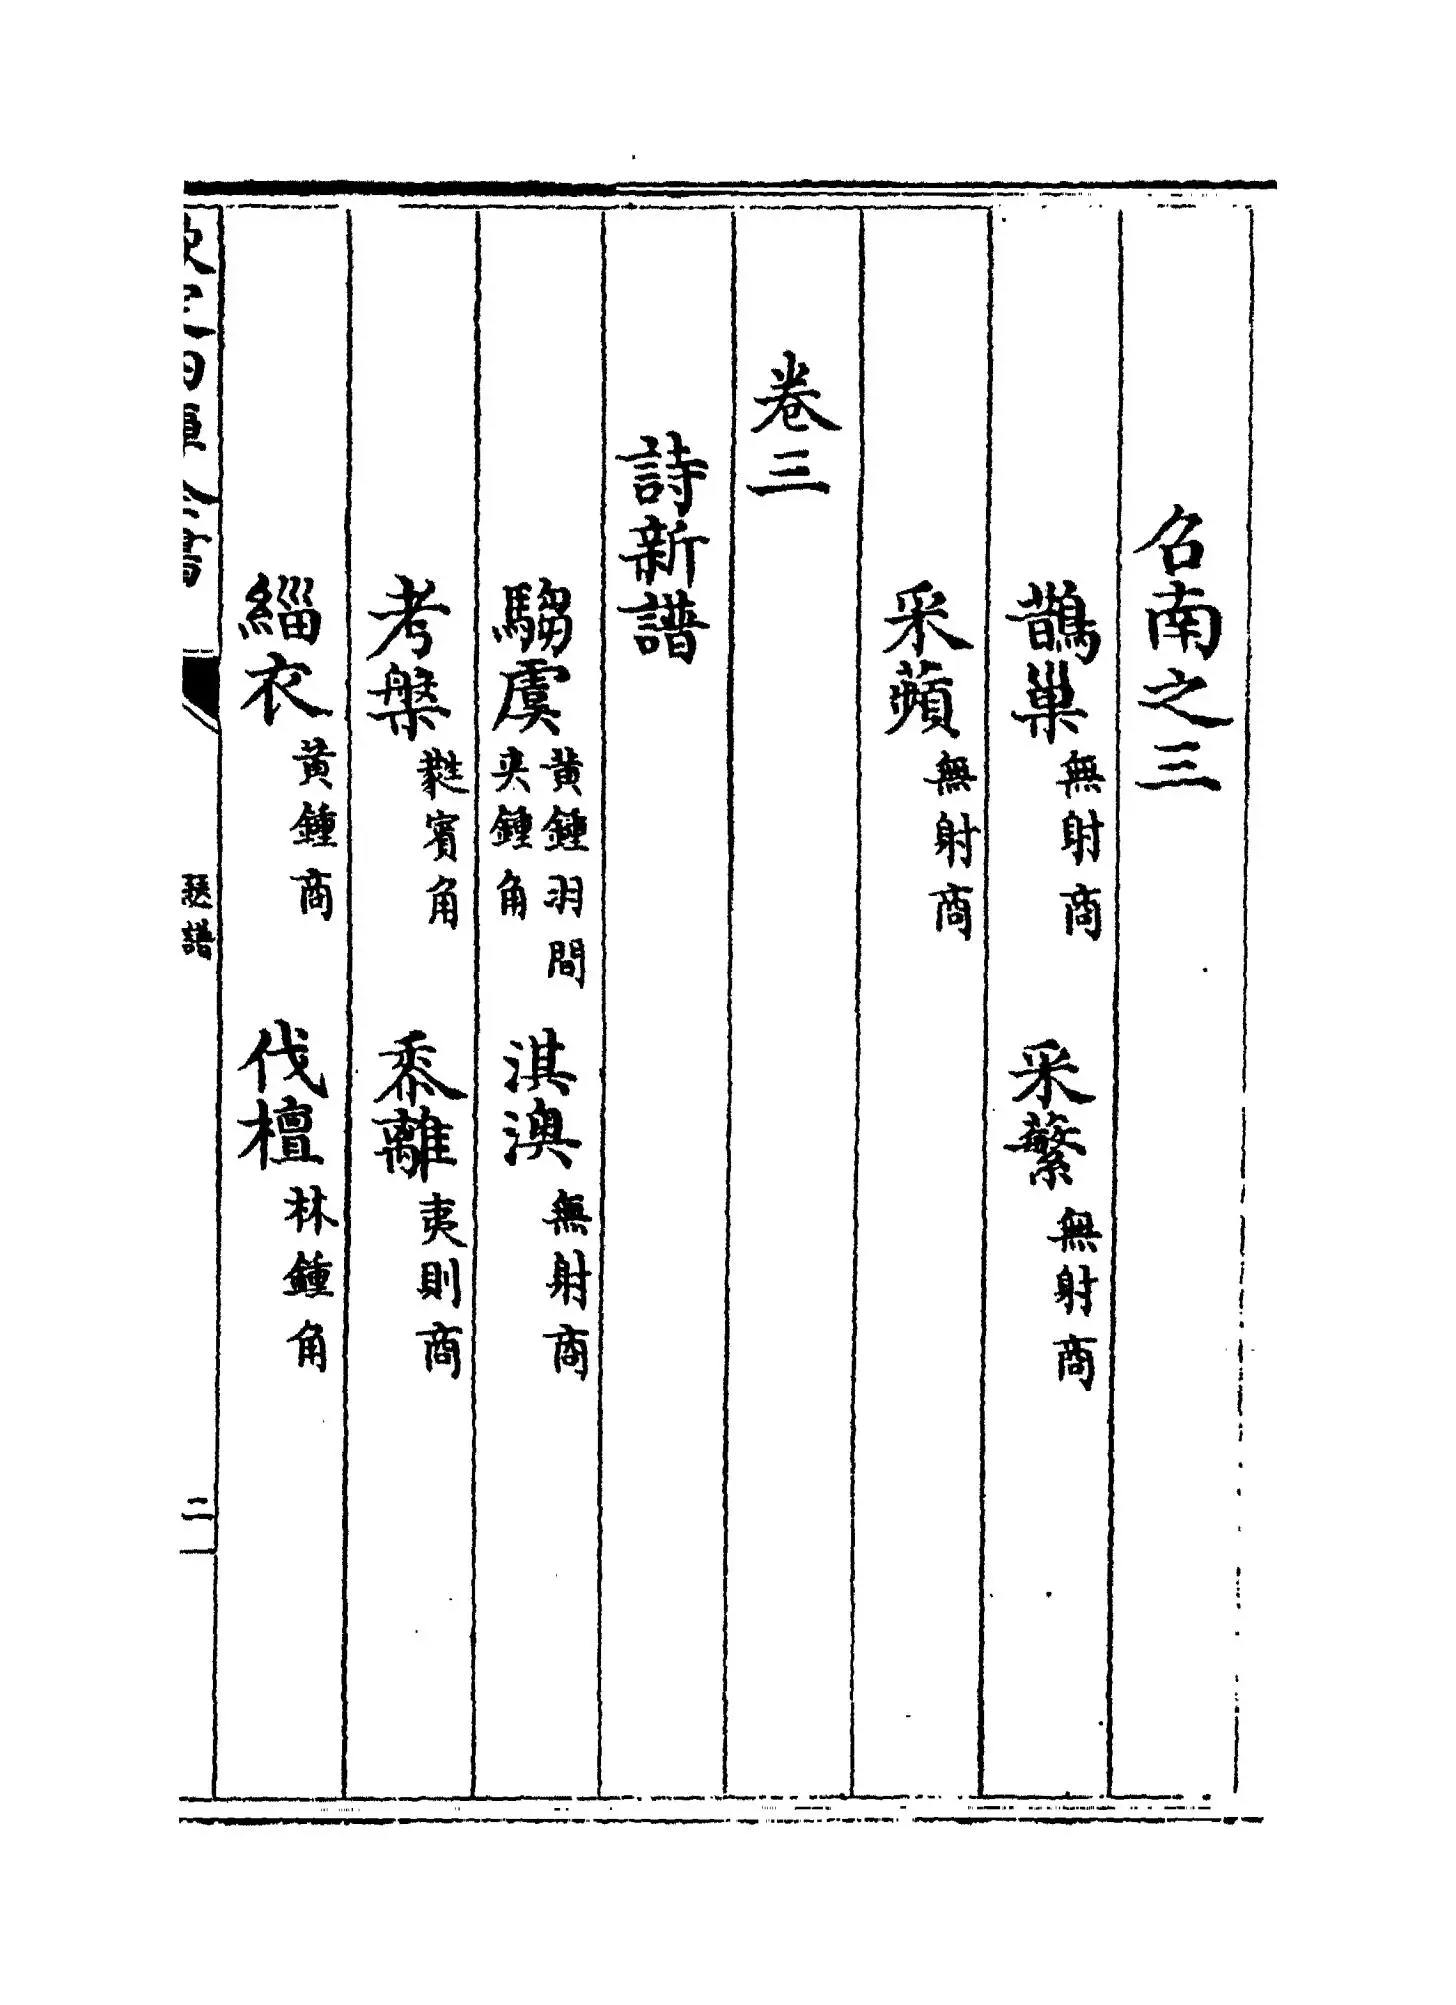 召南之三
鵲巢無射商 采蘩無射商
采蘋無射商
卷三
詩新譜
騶虞黄鍾羽間夾鍾角 淇澳無射商
考槃蕤賓角 黍離夷則商
緇衣黄鍾商 伐檀林鍾角
欽定四庫全書 瑟譜 二